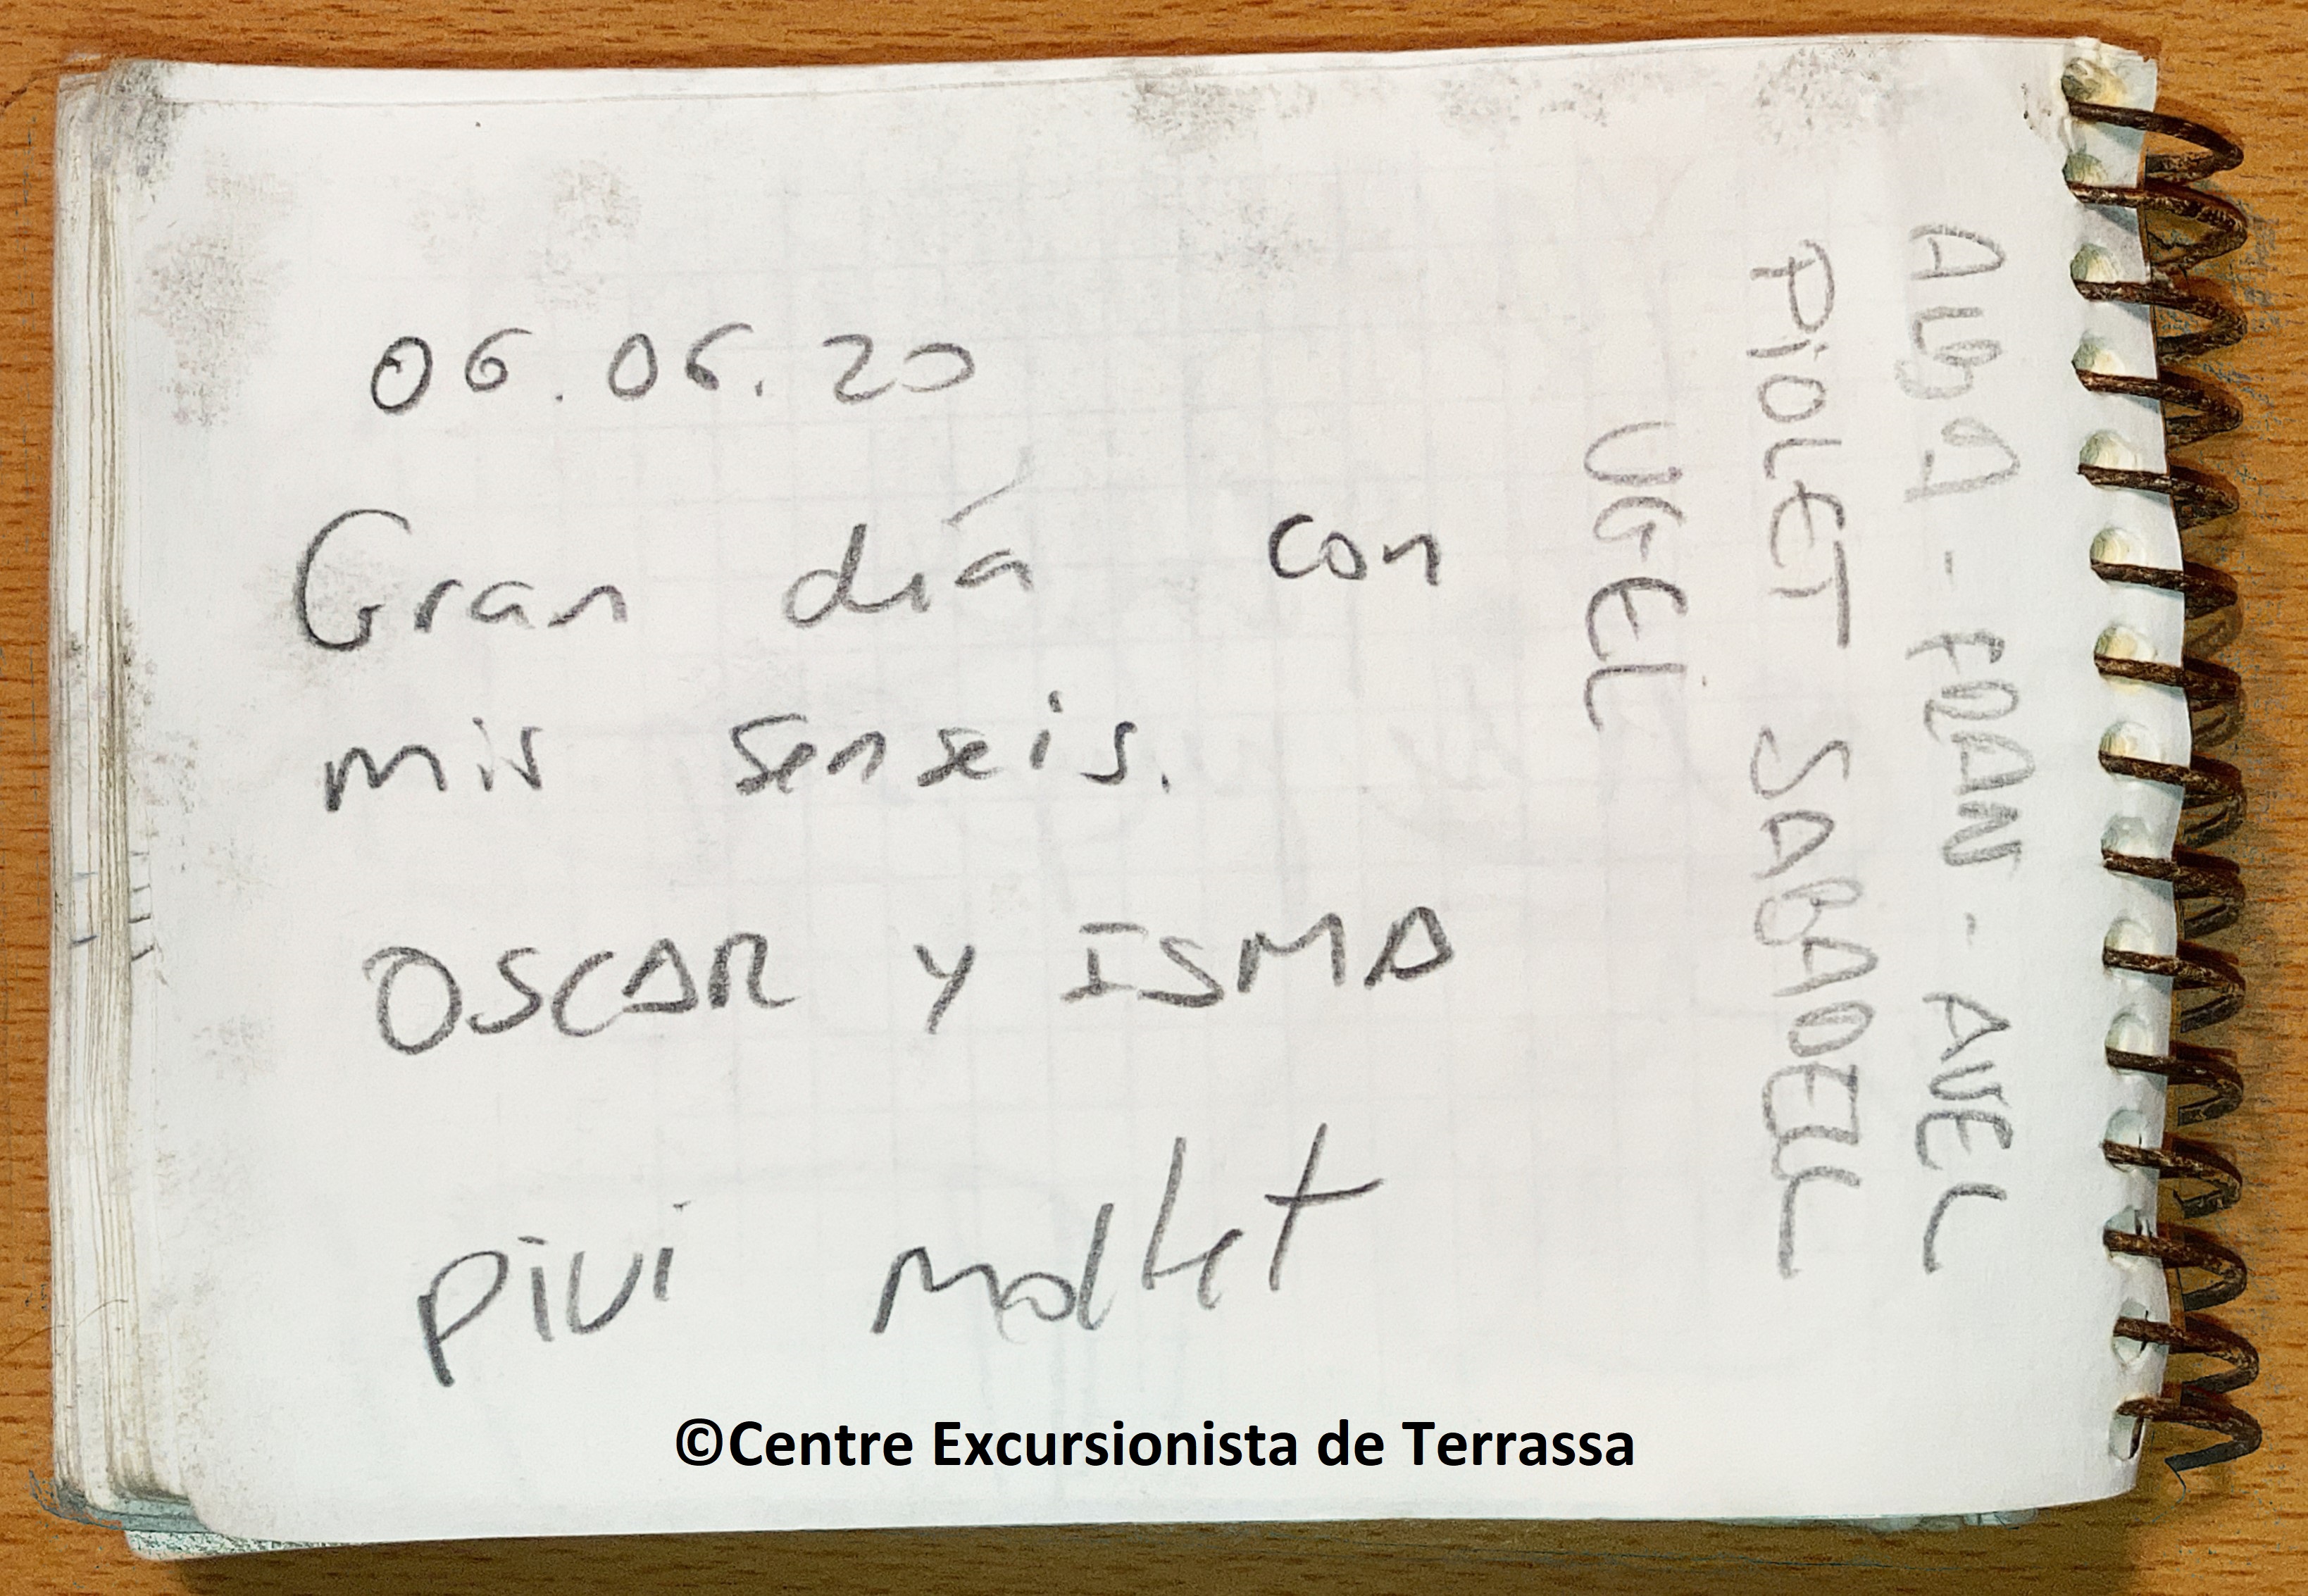 06.06.20
Gran día con
mis senseis.
OSCAR y ISMA
Pivi mollet
ALBA - FRAN - AVEL
PIOLET SABADELL
UGEL
©Centre Excursionista de Terrassa